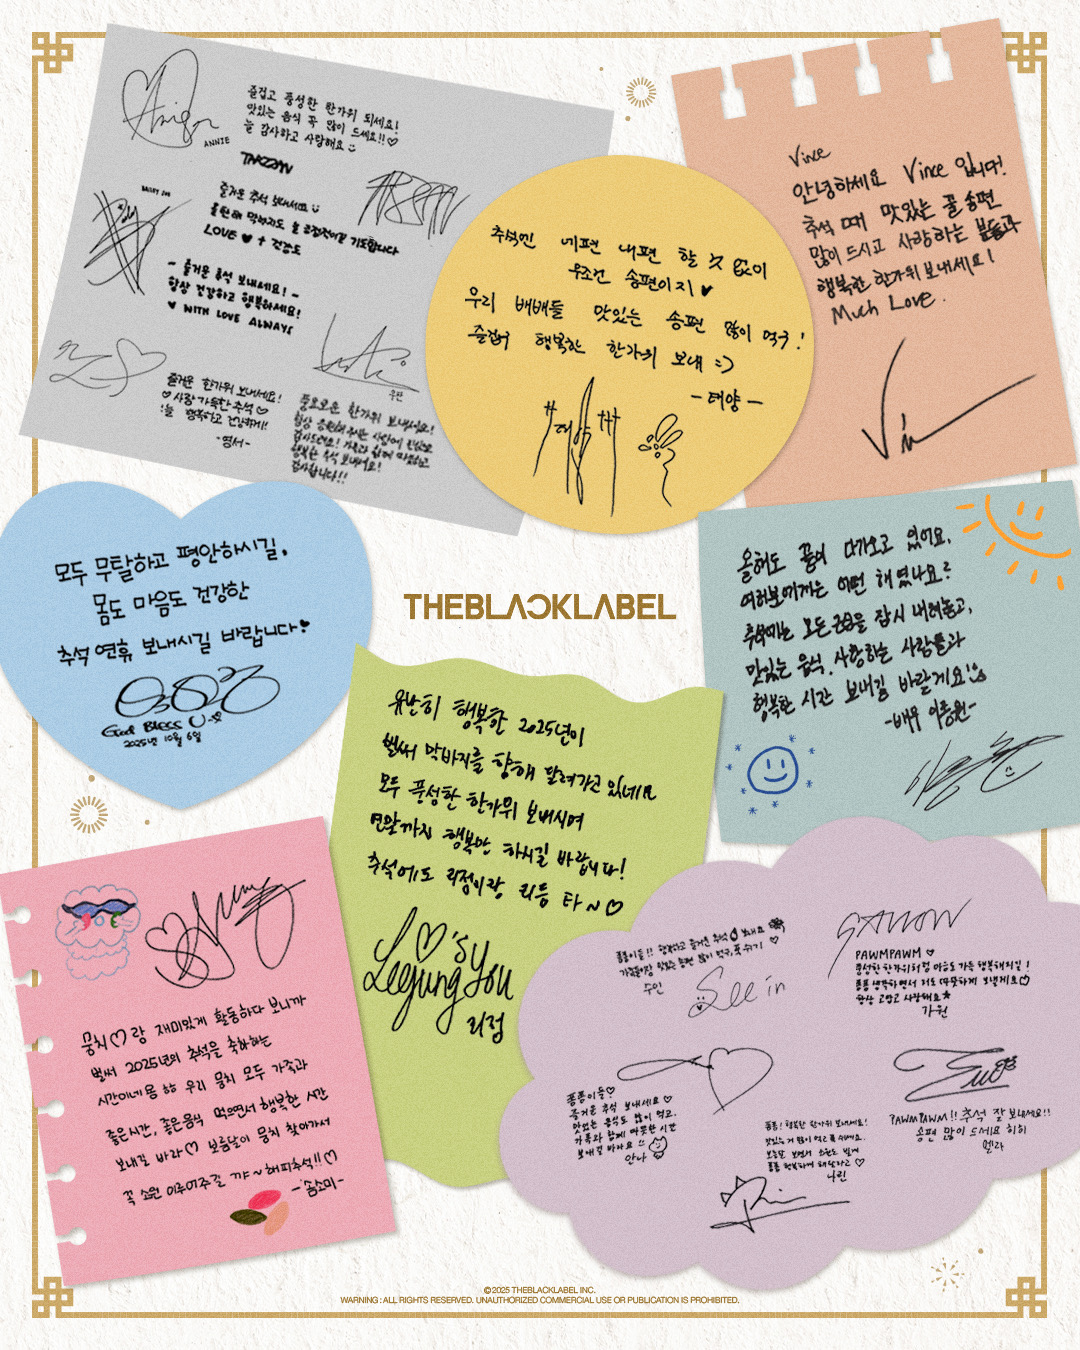 즐겁고 풍성한 한가위 되세요!
맛있는 음식 꼭 많이 드세요!!♡
늘 감사하고 사랑해요
ANNIE
TARZZAN
즐거운 추석 보내세요
올 한해 막바지도 늘 기도합니다
LOVE ♥ + 건강도
BAILEY
- 즐거운 추석 보내세요! -
항상 건강하고 행복하세요!
♥ WITH LOVE ALWAYS
즐거운 한가위 보내세요!
♡ 사랑 가득한 추석 ♡
늘 행복하고 건강하게!
-영서-
우찬
풍요로운 한가위 보내세요!
항상 응원해주시는
감사드려요! 가족과 함께
행복한 추석 보내세요!
감사합니다!!
추석엔 네편 내편 할 것 없이
무조건 송편이지 ♥
우리 배배들 맛있는 송편 많이 먹구!
즐겁게 행복한 한가위 보내 :)
-태양-
태양
Vince
안녕하세요 Vince 입니다!
추석 때 맛있는 꿀송편
많이 드시고 사랑하는 분들과
행복한 한가위 보내세요!
Much Love.
모두 무탈하고 평안하시길.
몸도 마음도 건강한
추석 연휴 보내시길 바랍니다♥
God Bless U
2025년 10월 6일
THEBLACKLABEL
올해도 끝이 다가오고 있어요.
여러분에게는 어떤 해였나요?
추석에는 모든 근심을 잠시 내려놓고,
맛있는 음식, 사랑하는 사람들과
행복한 시간 보내길 바랄게요!
-배우 이종원-
유난히 행복한 2025년이
벌써 막바지를 향해 달려가고 있네요
모두 풍성한 한가위 보내시며
연말까지 행복만 하시길 바랍니다!
추석에도 리정이랑 리듬 타~♡
Lo♡'sy
Leejung You
리정
뭉치♡랑 재미있게 활동하다 보니까
벌써 2025년의 추석을 축하하는
시간이네용 ㅎㅎ 우리 뭉치 모두 가족과
좋은시간, 좋은음식 먹으면서 행복한 시간
보내길 바라♡ 보름달이 뭉치 찾아가서
꼭 소원 이루어주길 꺄~해피추석!!♡
-송소미-
퐁퐁이들!! 행복하고 즐거운 추석 보내요
가족들이랑 맛있는 송편 많이 먹구, 푹 쉬기 ♡
수인
See in
GAWON
PAWMPAWM ♡
풍성한 한가위처럼 마음도 가득 행복해지길!
퐁퐁 생각하면서 저도 따뜻하게 보낼게요♡
항상 고맙고 사랑해요★
가원
퐁퐁이들♡
즐거운 추석 보내세요 ♡
맛있는 음식도 많이 먹고.
가족과 함께 따뜻한 시간
보내길 바라요
안나
PAWMPAWM!! 추석 잘 보내세요!!
송편 많이 드세요 히히
엘라
퐁퐁! 행복한 한가위 보내세요!
맛있는 거 많이 먹고 푹 쉬세요.
보름달 보면서 소원도 빌게
퐁퐁 행복하게 해달라고 ♡
나린
©2025 THEBLACKLABEL INC.
WARNING : ALL RIGHTS RESERVED. UNAUTHORIZED COMMERCIAL USE OR PUBLICATION IS PROHIBITED.